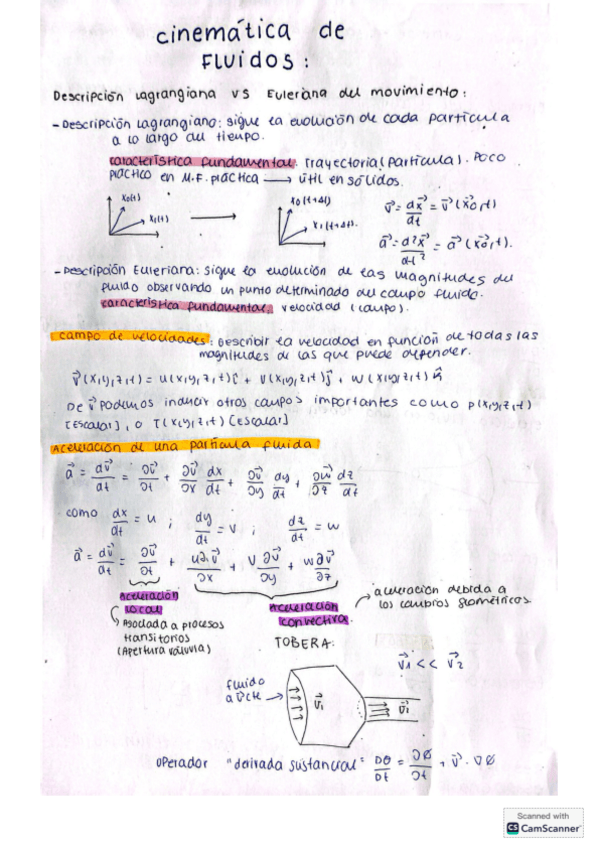 cinemática de
Fluidos:
Descripción Lagrangiana VS Euleriana del movimiento:
- Descripción Lagrangiano: sigue la evolución de cada partícula
a lo largo del tiempo.
característica fundamental. trayectoria (partícula). Poco
práctico en M.F. práctica → útil en sólidos.
x₀(t)
x₁(t)
x₀(t+Δt)
x₁(t+Δt).
v⃗ = dx⃗/dt = v⃗(x⃗₀,t)
a⃗ = d²x⃗/dt² = a⃗(x⃗₀,t).
- Descripción Euleriana: sigue la evolución de las magnitudes del
fluido observando un punto determinado del campo fluido.
característica fundamental, velocidad (campo).
campo de velocidades: Describir la velocidad en función de todas las
magnitudes de las que puede depender.
v⃗(x,y,z,t) = u(x,y,z,t)i⃗ + v(x,y,z,t)j⃗ + w(x,y,z,t)k⃗
De v⃗ podemos inducir otros campos importantes como p(x,y,z,t)
[escalar], o T(x,y,z,t) [escalar]
Aceleración de una partícula fluida:
a⃗ = dv⃗/dt = ∂v⃗/∂t + ∂v⃗/∂x dx/dt + ∂v⃗/∂y dy/dt + ∂w⃗/∂z dz/dt
como dx/dt = u ; dy/dt = v ; dz/dt = w
a⃗ = dv⃗/dt = ∂v⃗/∂t + u∂v⃗/∂x + v∂v⃗/∂y + w∂v⃗/∂z
Aceleración
local
Aceleración
convectiva.
aceleración debida a
los cambios geométricos.
Asociada a procesos
transitorios
(Apertura válvula)
TOBERA.
v⃗1 << v⃗2
fluido
v⃗1
v⃗1
Operador "derivada sustancial" = DØ/Dt = ∂Ø/∂t + v⃗ · ∇Ø
Scanned with
CS CamScanner